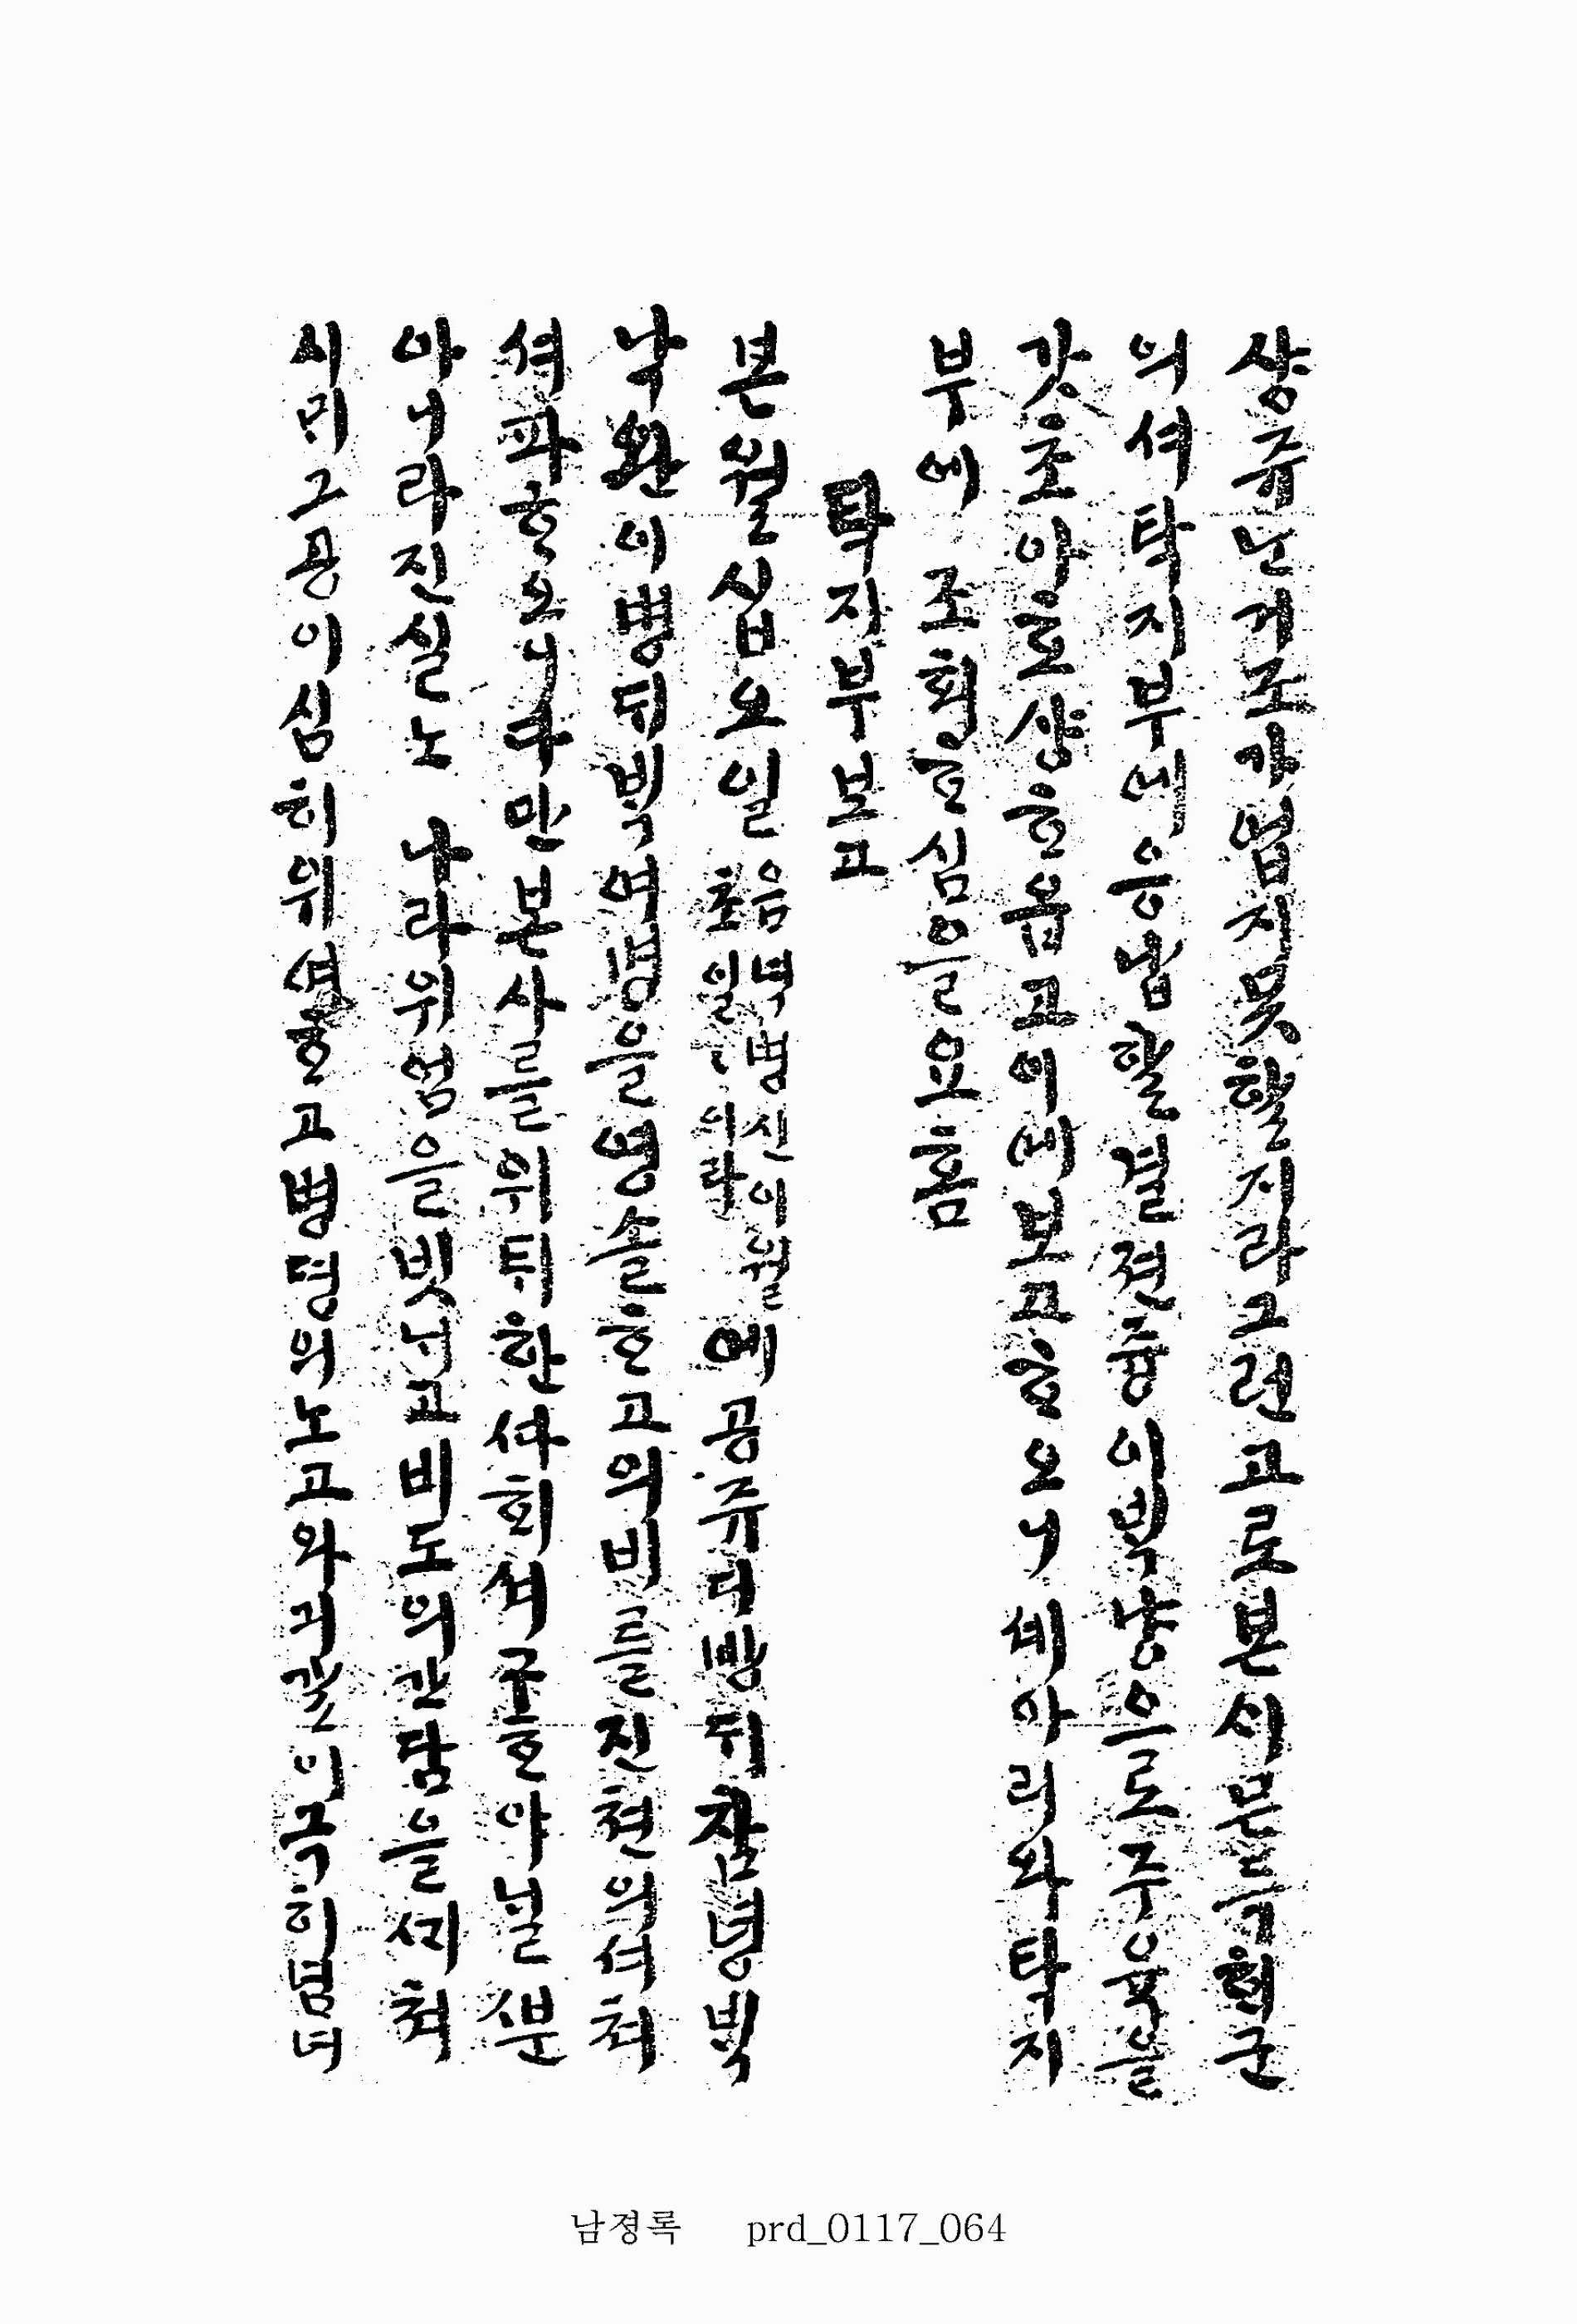 샹쥬난 거조가 업지 못할지라 그런고로 본 시 문득 현군
의셔 탁지부에 응납할 결젼 즁 이 빅 냥으로 주육을
갓초아 호샹하옵고 이에 보고하오니 셰아리와 탁지
부에 조회하심을 요홈
탁지부 보고
본월 십오일 음녁 병신 이월 초일일이라 예 공쥬 디방 뒤 참녕 빅
낙완이 병뒤 빅여 명을 영솔하고 의비를 진쳔의셔 쳐
셔 파하오니 다만 본사를 위뒤한 사회셔 구하야 닐 분
아니라 진실노 나라 위엄을 빗너고 비도의 간담을 찌쳐
시미 그 공이 심히 위연하고 병뎡의 노고와 긔갈이 극히 념녀